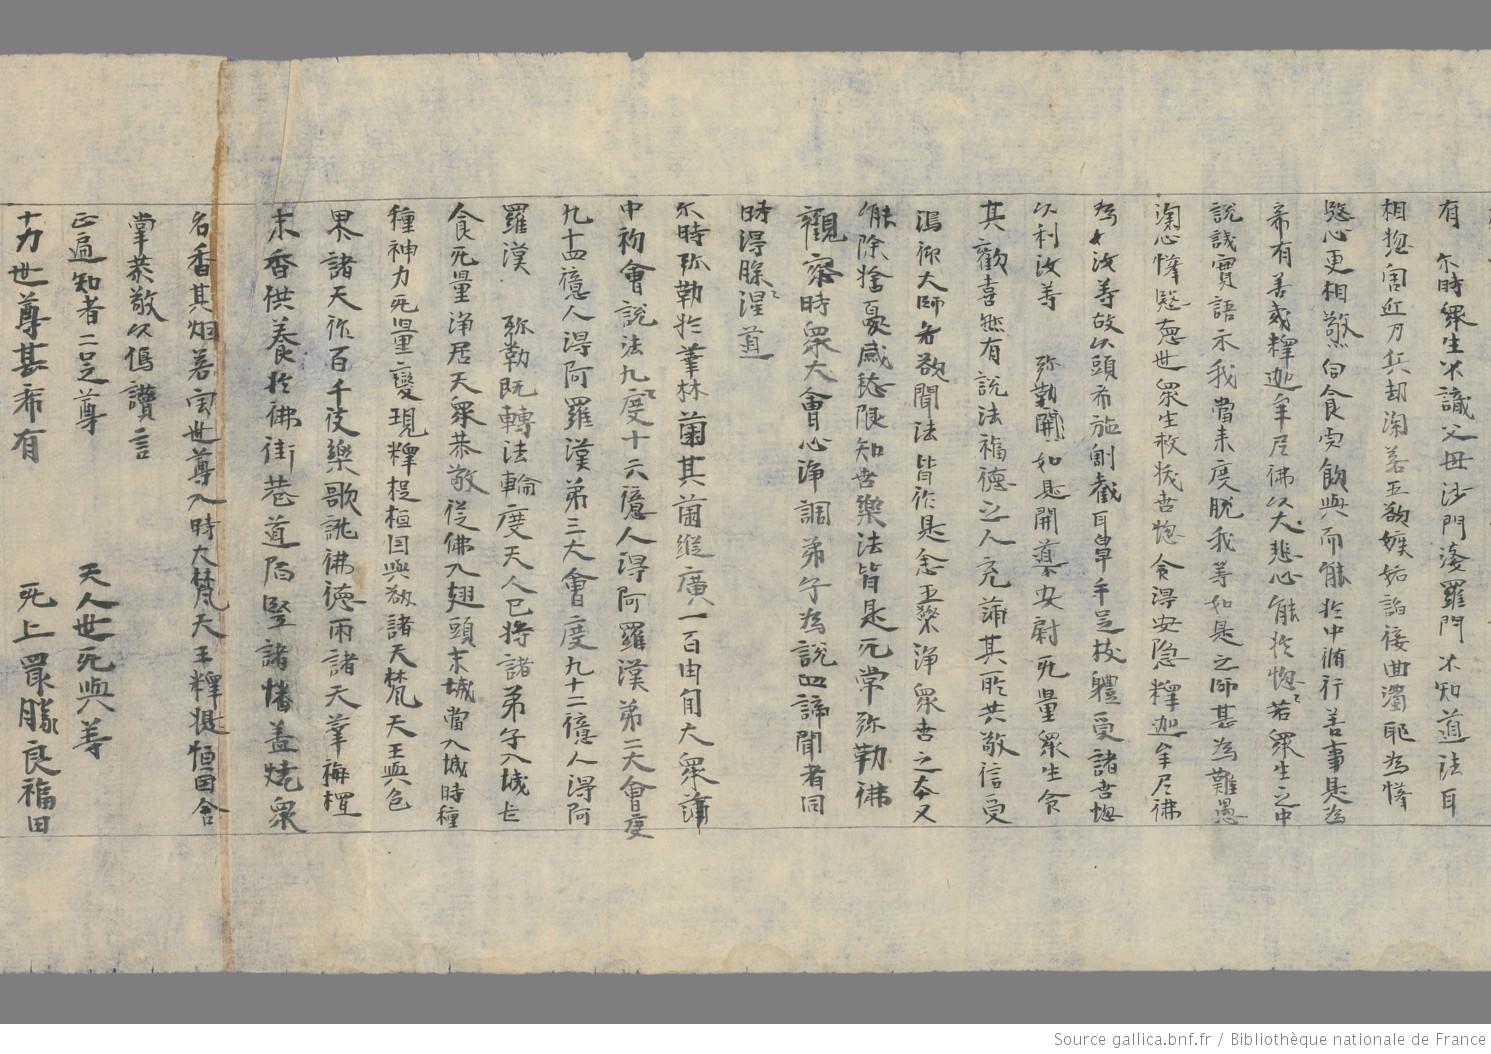 有 尒時眾生不識父母沙門婆羅門不知道法互
相惱害近刀兵劫深著五欲嫉妬諂佞曲濁耶為憐
愍心更相煞害食肉飲血而能於中脩行善事是為
希有善哉釋迦牟尼佛以大悲心能於惱〻若眾生之中
說誠實語示我當來度脫我等如是之師甚為難遇
深心憐愍惡世眾生救拔苦惱令得安隱釋迦牟尼佛
為女汝等故以頭布施割截耳鼻手足支體受諸苦惱
以利汝等 弥勒開如是開導安慰无量眾生令
其歡喜然有說法福德之人充滿其所共敬信受
渴仰大師各欲聞法皆作是念五欲不淨眾苦之本又
能除捨憂慼愁恨知苦樂法皆是无常弥勒佛
觀察時眾大會心淨調弟子為說四諦聞者同
時得涅〻道
尒時弥勒於華林薗其薗縱廣一百由旬大眾滿
中初會說法九度十六億人得阿羅漢弟二大會度
九十四億人得阿羅漢弟三大會度九十二億人得阿
羅漢 弥勒既轉法輪度天人已將諸弟子入城乞
食无量淨居天眾恭敬從佛入翅頭末城當入城時種
種神力无量變現釋提桓因與欲諸天梵天王與色
界諸天作百千伎樂歌詠佛德雨諸天華栴檀
末香供養於佛街巷道陌竪諸幡蓋燒眾
名香其烟若雲世尊入時大梵天王釋提恒因合
掌恭敬以偈讚言
正遍知者二足尊 天人世无與等
十力世尊甚希有 无上最勝良福田
Source gallica.bnf.fr / Bibliothèque nationale de France